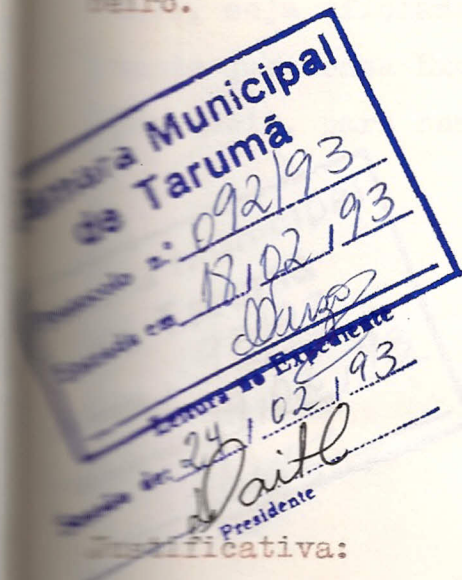 Câmara Municipal
de Tarumã
Protocolo n.º 092/93
em 18/02/93
Leitura no Expediente
Sessão de: 24/02/93
Presidente
Justificativa: